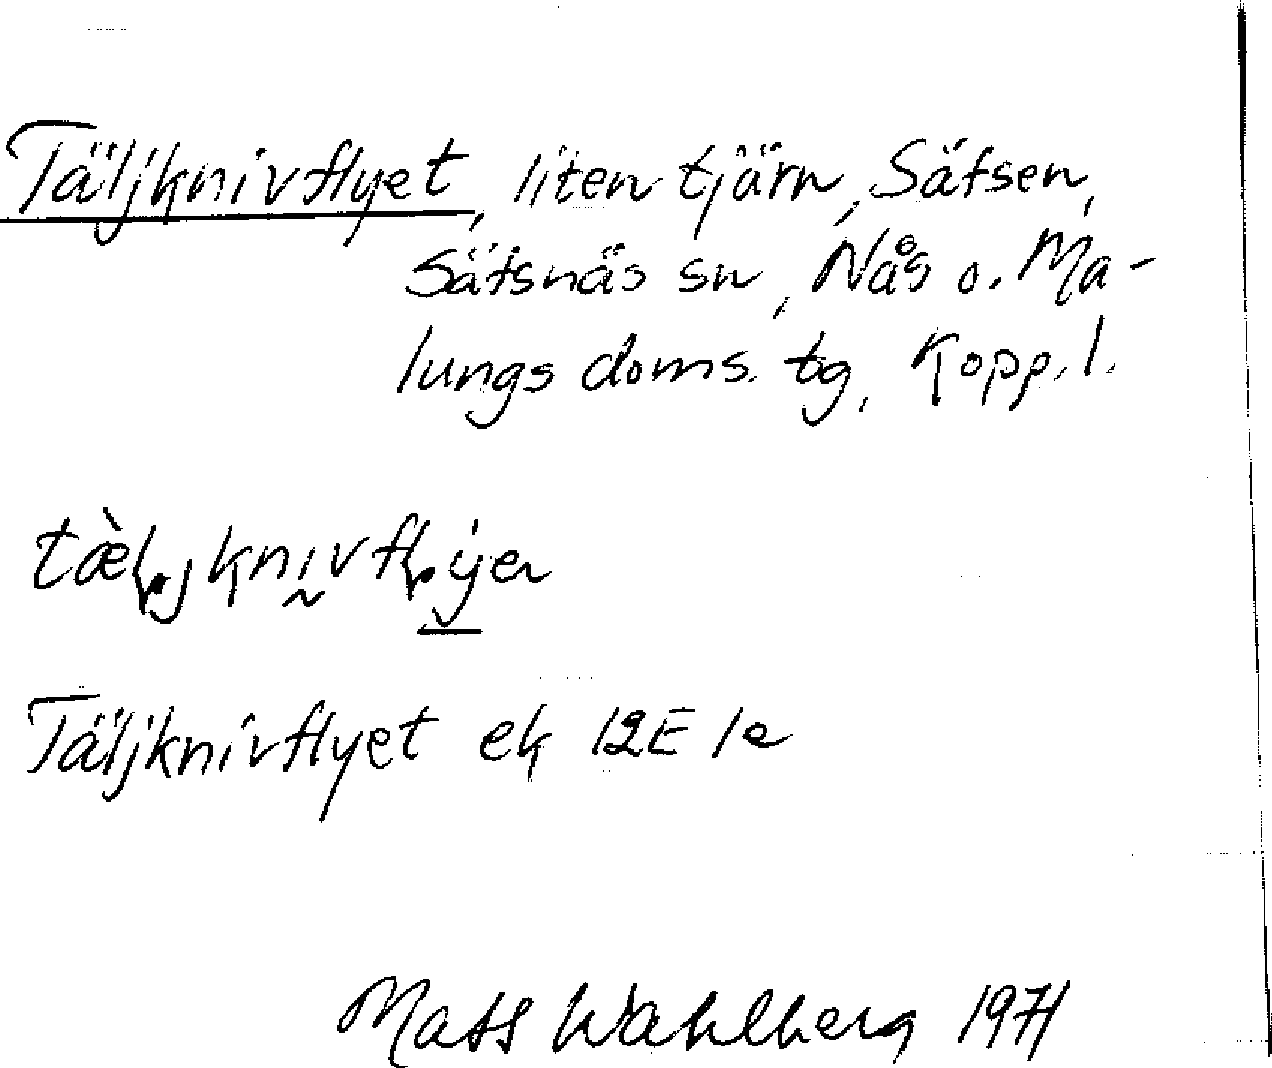 Täljknivflyet, liten tjärn, Säfsen,
Säfsnäs sn, Nås o. Ma-
lungs doms. tg, Kopp. l.
Täljknivflyet ek 12E 1e
Mats Wahlberg 1971